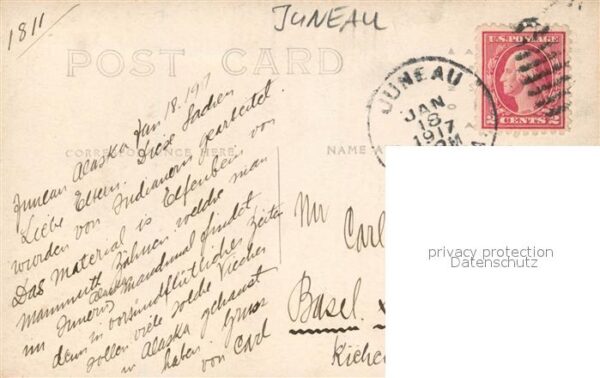 1811
JUNEAU
POST CARD
U.S. POSTAGE
2 CENTS 2
JUNEAU
JAN
18
1917
CORRESPONDENCE HERE
NAME A
Juneau Alaska Jan 18. 1917
Liebe Eltern. Diese Sachen
wurden von Indianern gearbeitet.
Das Material is Elfenbein von
Mammuth Zähnen welche man
im Innern Alaska manchmal findet
denn in vorsündflutlicher Zeiten
sollen viele solche Viecher
in Alaska gehaust
haben. Gruss
von Carl
Mr Carl
Basel
privacy protection
Datenschutz